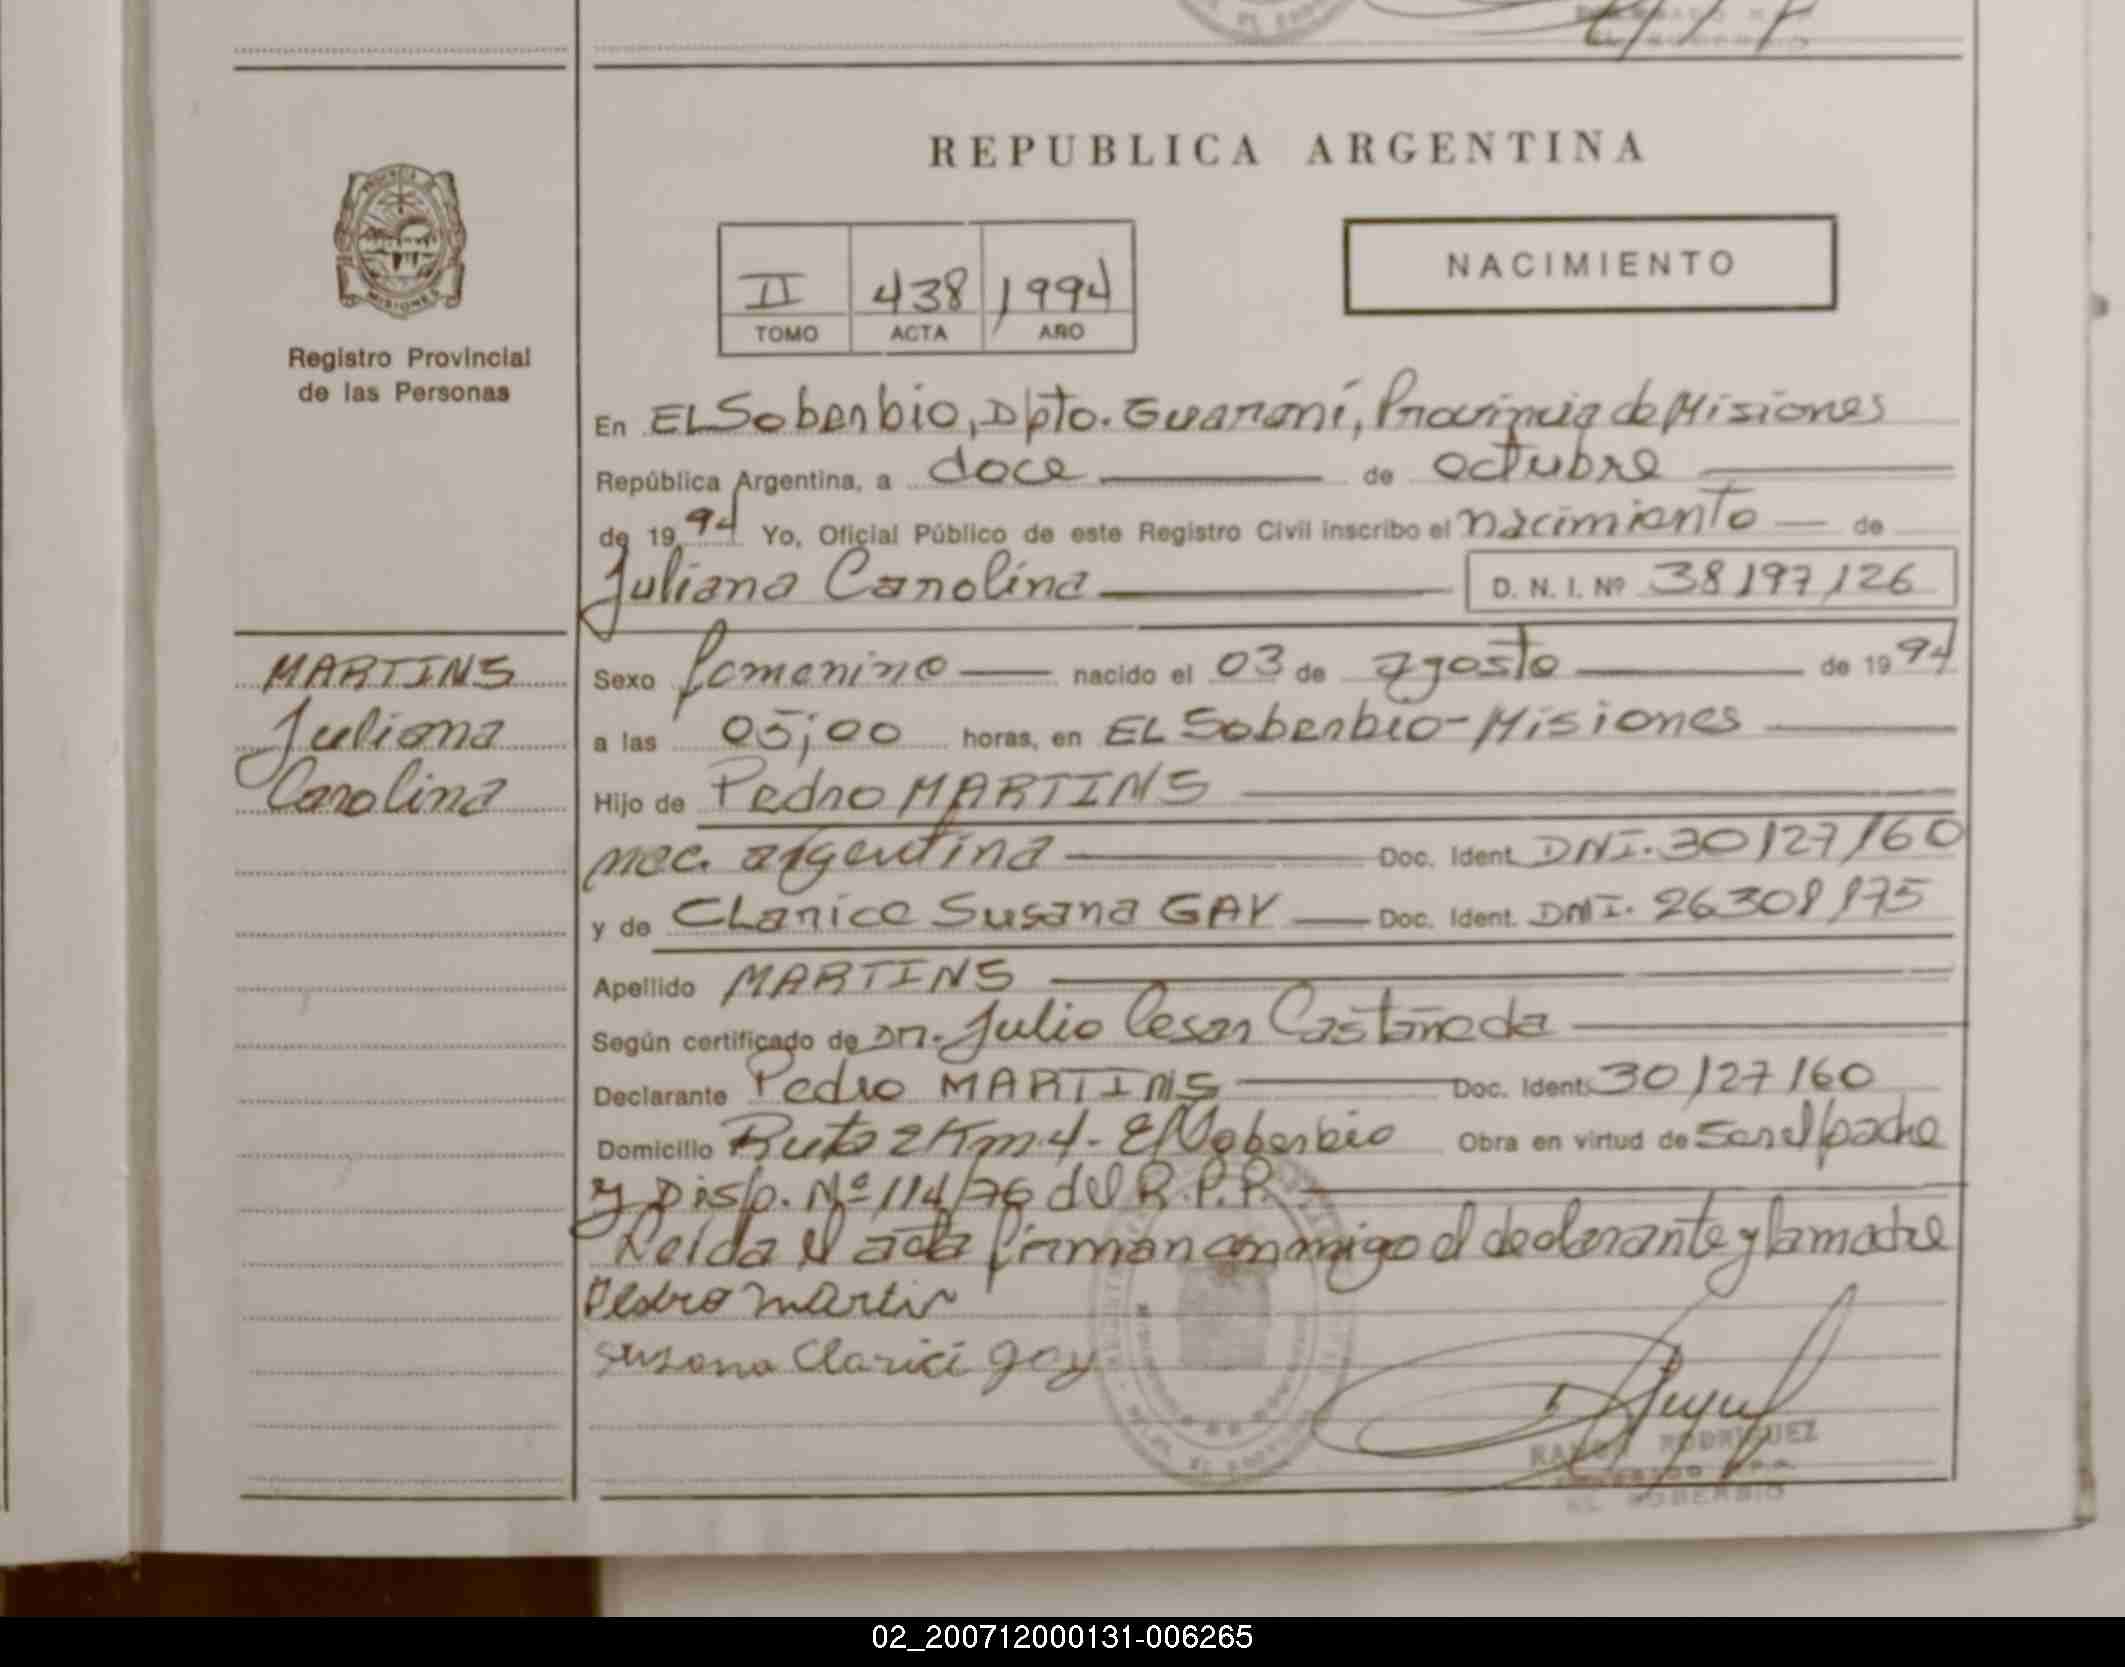 REPUBLICA ARGENTINA
NACIMIENTO
II 438 1994
TOMO ACTA AÑO
Registro Provincial
de las Personas
En EL Soberbio, Dpto. Guaraní, Provincia de Misiones
República Argentina, a doce de octubre
de 1994 Yo, Oficial Público de este Registro Civil inscribo el nacimiento de
Juliana Carolina D. N. I. Nº 38197126
MARTINS
Juliana
Carolina
Sexo femenino nacido el 03 de agosto de 1994
a las 05;00 horas, en EL Soberbio-Misiones
Hijo de Pedro MARTINS
nac. argentina Doc. Ident. DNI. 30127160
y de CLarice Susana GAY Doc. Ident. DNI. 26308175
Apellido MARTINS
Según certificado de Dr. Julio Cesar Castañeda
Declarante Pedro MARTINS Doc. Ident. 30127160
Domicilio Ruta 2 Km 4- El Soberbio Obra en virtud de ser el padre
y Disp. Nº 114/76 del R.P.P.
Leída el acta firman conmigo el declarante y la madre
Pedro Martin
Susana Clarici gay
RODRIGUEZ
EL SOBERBIO
02_200712000131-006265